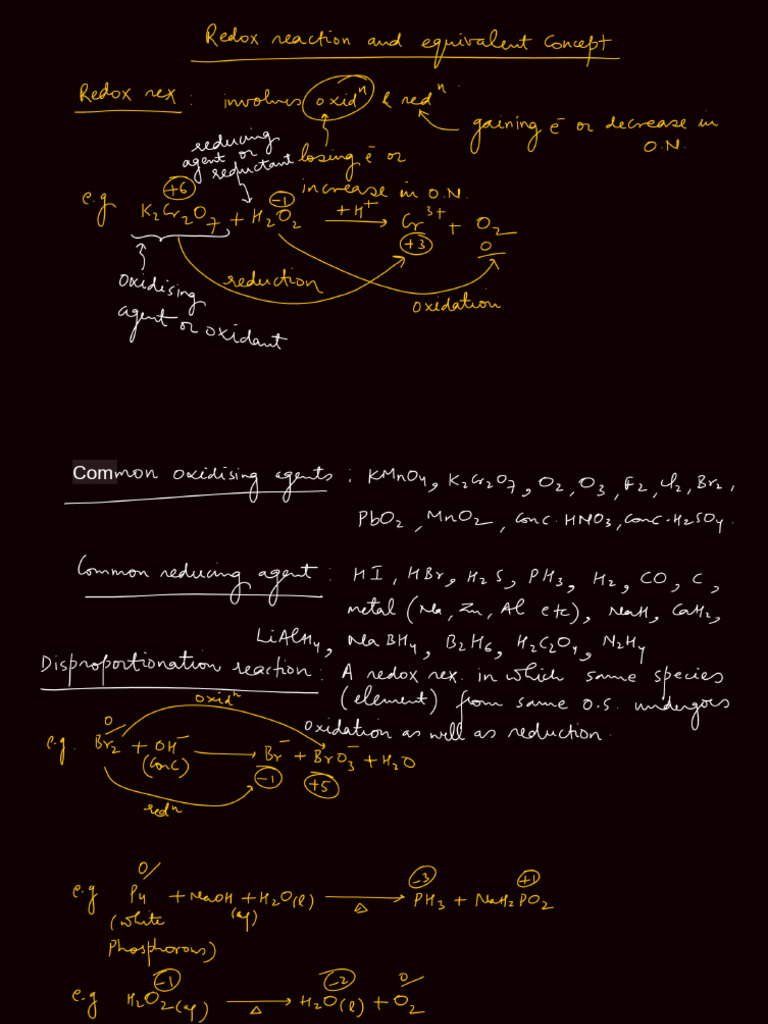 Redox reaction and equivalent Concept
Redox rex : involves oxidⁿ & redⁿ
gaining e⁻ or decrease in
O.N.
reducing
agent or
reductant
losing e⁻ or
increase in O.N.
e.g K₂Cr₂O₇ + H₂O₂ +H⁺ → Cr³⁺ + O₂
+6 -1 +3 0
reduction
oxidation
oxidising
agent or oxidant
Common oxidising agents : KMnO₄, K₂Cr₂O₇, O₂, O₃, F₂, Cl₂, Br₂,
PbO₂, MnO₂, Conc. HNO₃, Conc. H₂SO₄.
Common reducing agent : HI, HBr, H₂S, PH₃, H₂, CO, C,
metal (Na, Zn, Al etc), NaH, CaH₂,
LiAlH₄, NaBH₄, B₂H₆, H₂C₂O₄, N₂H₄
Disproportionation reaction : A redox rex. in which same species
(element) from same O.S. undergoes
oxidation as well as reduction.
oxidⁿ
0
e.g. Br₂ + OH⁻ → Br⁻ + BrO₃⁻ + H₂O
(Conc) -1 +5
redⁿ
0 -3 +1
e.g P₄ + NaOH + H₂O(l) → PH₃ + NaH₂PO₂
(aq) Δ
(white
Phosphorous)
-1 -2 0
e.g H₂O₂(aq) → H₂O(l) + O₂
Δ